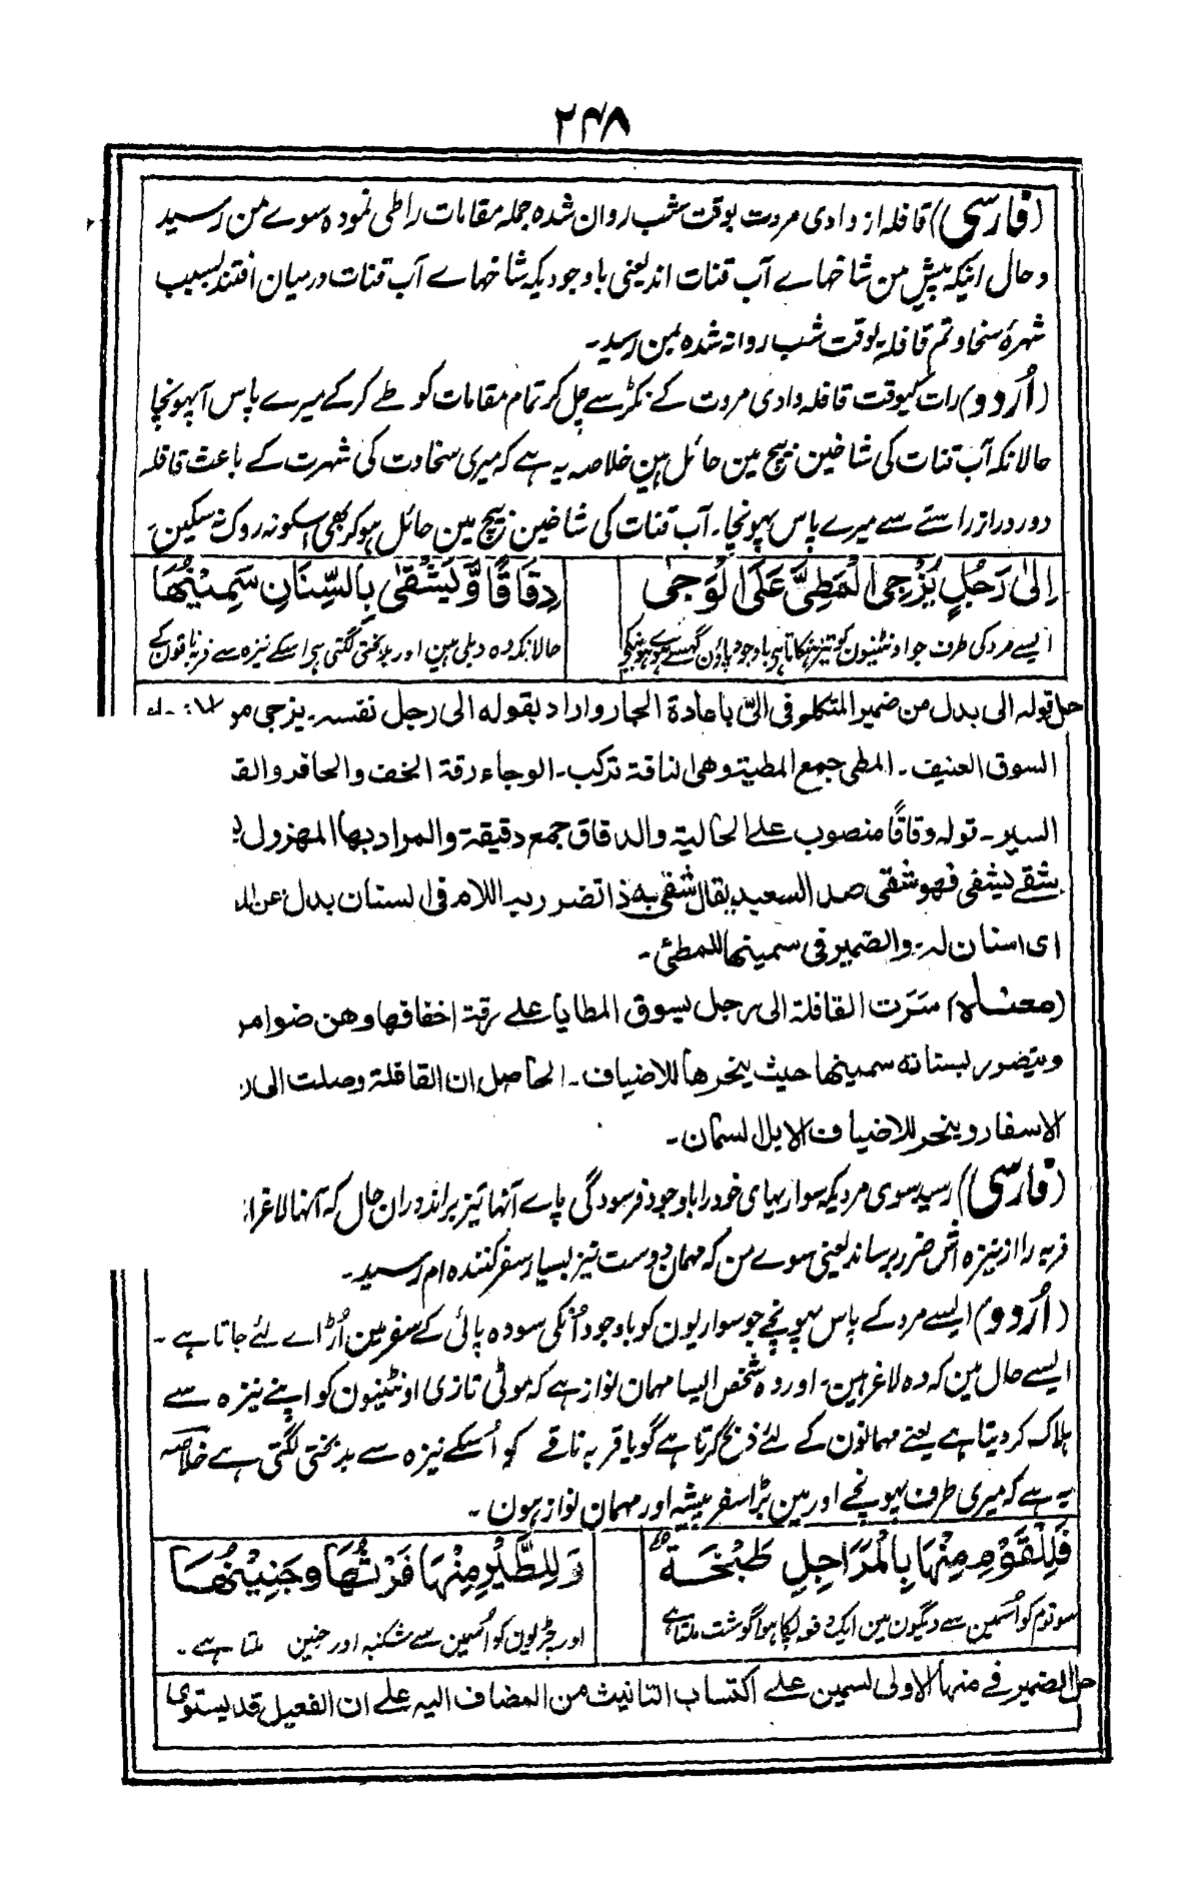 ۲۴۸
(فارسی) قافله از وادی مروت بوقت شب روان شده جمله مقامات را طی نموده سوے من رسید
و حال اینکه پیش من شاخهاے آب قنات اند یعنی باوجودیکه شاخهاے آب قنات درمیان افتند بسبب
شهرهٔ سخاوتم قافله بوقت شب روانه شده بمن رسید۔
(اُردو) رات کیوقت قافله وادی مروت کے نکڑ سے چل کر تمام مقامات کو طے کر کے میرے پاس آپہونچا
حالانکہ آب قنات کی شاخین بیچ مین حائل ہین خلاصہ یہ ہے کہ میری سخاوت کی شہرت کے باعث قافلہ
دور دراز راستے سے میرے پاس پہونچا۔ آب قنات کی شاخین بیچ مین حائل ہو کر بھی اسکو نہ روک سکین۔
اِلیٰ رَجُلٍ یُزْجِی الْمَطِیَّ عَلَی الْوَجیٰ دِقَاقًا وَّیَشْقیٰ بِالسِّنَانِ سَمِیْنُهَا
ایسے مرد کی طرف جو اونٹنیون کو تیز ہنکاتا ہو باوجود پاؤن گھسے ہونیکے حالانکہ وہ دبلی ہین اور بدبختی لگتی ہی اسکے نیزہ سے فربہ ناقون کے
حل قوله الی بدل من ضمیر المتکلم فی الیّ باعادة الجار واراد بقوله الی رجل نفسه۔ یزجی مو
السوق العنیف۔ المطی جمع المطیة وهی الناقة ترکب۔ الوجاء رقة الخف والحافر والقـ
السیر۔ قوله دقاقًا منصوب علے الحالیة والدقاق جمع دقیقة والمراد بها المهزول
یشقے یشقی فهو شقی ضد السعید یقال شقی به ذا تضرر به اللام فی السنان بدل عن
ای اسنان له والضمیر فی سمینها للمطی۔
(معناه) سَرَت القافلة الی رجل یسوق المطایا علے رقة اخفافها وهن ضوامر
ویتضرر بسنانه سمینها حیث ینحرها للاضیاف۔ الحاصل ان القافلة وصلت الی
الاسفار وینحر للاضیاف الابل السمان۔
(فارسی) رسید سوی مردیکه سواریهای خود را باوجود فرسودگی پاے آنها تیز براند دران حال که آنها لاغر اند
فربه را از نیزه اش ضرر برساند یعنی سوے من که مهمان دوست نیز بسیار سفر کننده ام رسید۔
(اُردو) ایسے مرد کے پاس پہونچے جو سواریون کو باوجود اُنکی سودہ پائی کے سفر مین اُڑاے لئے جاتا ہے۔
ایسے حال مین کہ وہ لاغر ہین۔ اور وہ شخص ایسا مہمان نواز ہے کہ موٹی تازی اونٹنیون کو اپنے نیزہ سے
ہلاک کر دیتا ہے یعنے مہمانون کے لئے ذبح کرتا ہے گویا فربہ ناقے کو اُسکے نیزہ سے بدبختی لگتی ہے خلاصہ
یہ ہے کہ میری طرف پہونچے اور مین بڑا سفر پیشہ اور مہمان نواز ہون۔
فَلِلْقَوْمِ مِنْهَا بِالْمَرَاجِلِ طَبْخَةٌ وَلِلطَّیْرِ مِنْهَا فَرْثُهَا وَجَنِیْنُهَا
سو قوم کو اُسمین سے دیگون مین ایک دفعہ پکا ہوا گوشت ملتا ہے اور چڑیون کو اُسمین سے شکنبہ اور جنین ملتا ہے۔
حل الضمیر فے منها الاولی لسمین علے اکتساب التانیث من المضاف الیه علے ان الفعیل قد یستوی